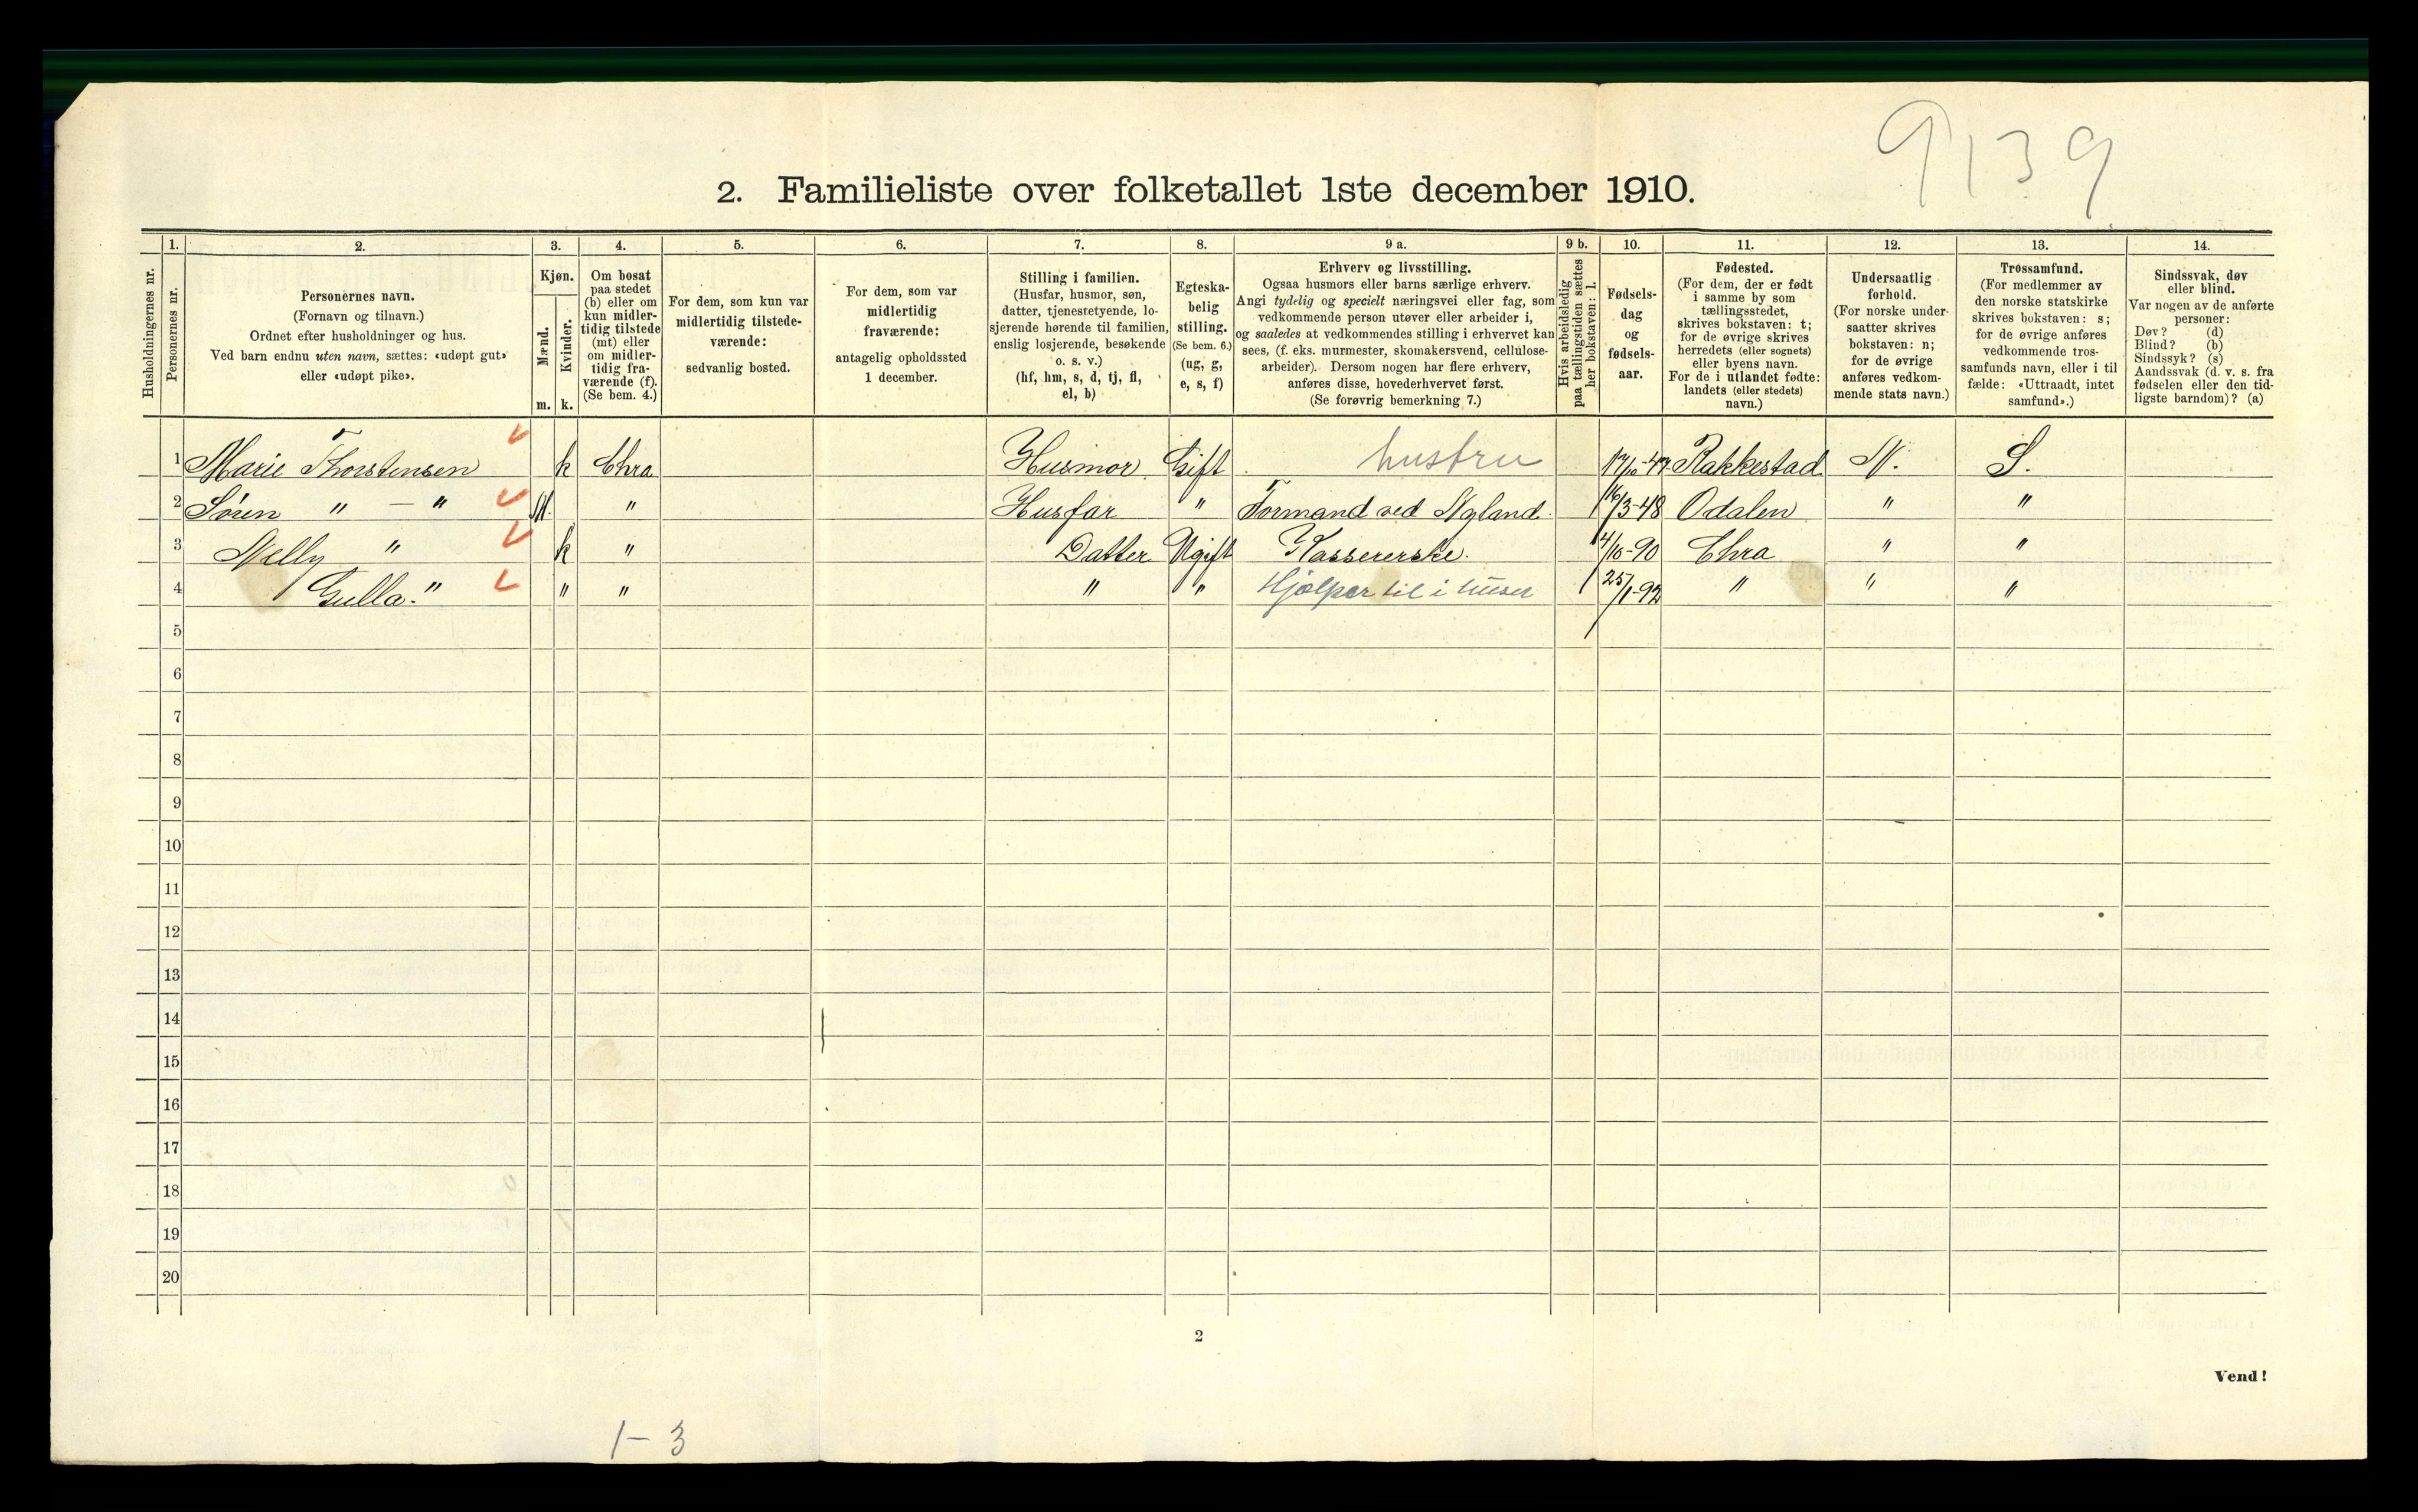 9139
2. Familieliste over folketallet 1ste december 1910.
Husholdningernes nr.
1.
Personernes nr.
2.
Personernes navn.
(Fornavn og tilnavn.)
Ordnet efter husholdninger og hus.
Ved barn endnu uten navn, sættes: «udøpt gut»
eller «udøpt pike».
3.
Kjøn.
Mænd.
Kvinder.
m. k.
4.
Om bosat
paa stedet
(b) eller om
kun midler-
tidig tilstede
(mt) eller
om midler-
tidig fra-
værende (f).
(Se bem. 4.)
5.
For dem, som kun var
midlertidig tilstede-
værende:
sedvanlig bosted.
6.
For dem, som var
midlertidig
fraværende:
antagelig opholdssted
1 december.
7.
Stilling i familien.
(Husfar, husmor, søn,
datter, tjenestetyende, lo-
sjerende hørende til familien,
enslig losjerende, besøkende
o. s. v.)
(hf, hm, s, d, tj, fl,
el, b)
8.
Egteska-
belig
stilling.
(Se bem. 6.)
(ug, g,
e, s, f)
9 a.
Erhverv og livsstilling.
Ogsaa husmors eller barns særlige erhverv.
Angi tydelig og specielt næringsvei eller fag, som
vedkommende person utøver eller arbeider i,
og saaledes at vedkommendes stilling i erhvervet kan
sees, (f. eks. murmester, skomakersvend, cellulose-
arbeider). Dersom nogen har flere erhverv,
anføres disse, hovederhvervet først.
(Se forøvrig bemerkning 7.)
9 b.
Hvis arbeidsledig
paa tællingstiden sættes
her bokstaven: l.
10.
Fødsels-
dag
og
fødsels-
aar.
11.
Fødested.
(For dem, der er født
i samme by som
tællingsstedet,
skrives bokstaven: t;
for de øvrige skrives
herredets (eller sognets)
eller byens navn.
For de i utlandet fødte:
landets (eller stedets)
navn.)
12.
Undersaatlig
forhold.
(For norske under-
saatter skrives
bokstaven: n;
for de øvrige
anføres vedkom-
mende stats navn.)
13.
Trossamfund.
(For medlemmer av
den norske statskirke
skrives bokstaven: s;
for de øvrige anføres
vedkommende tros-
samfunds navn, eller i til
fælde: «Uttraadt, intet
samfund».)
14.
Sindssvak, døv
eller blind.
Var nogen av de anførte
personer:
Døv? (d)
Blind? (b)
Sindssyk? (s)
Aandssvak (d. v. s. fra
fødselen eller den tid-
ligste barndom)? (a)
1 Marie Thorstensen k Chra Husmor Gift hustru 17/10-47 Rakkestad N. S.
2 Søren " — " M. " Husfar " Formand ved Nyland 16/3-48 Odalen " "
3 Nelly " k " Datter Ugift Kassererske. 4/10-90 Chra " "
4 Gulla. " " " " " Hjælper til i huset 25/1-92 " " "
5
6
7
8
9
10
11
12
13
14
15
16
17
18
19
20
2
Vend!
1-3